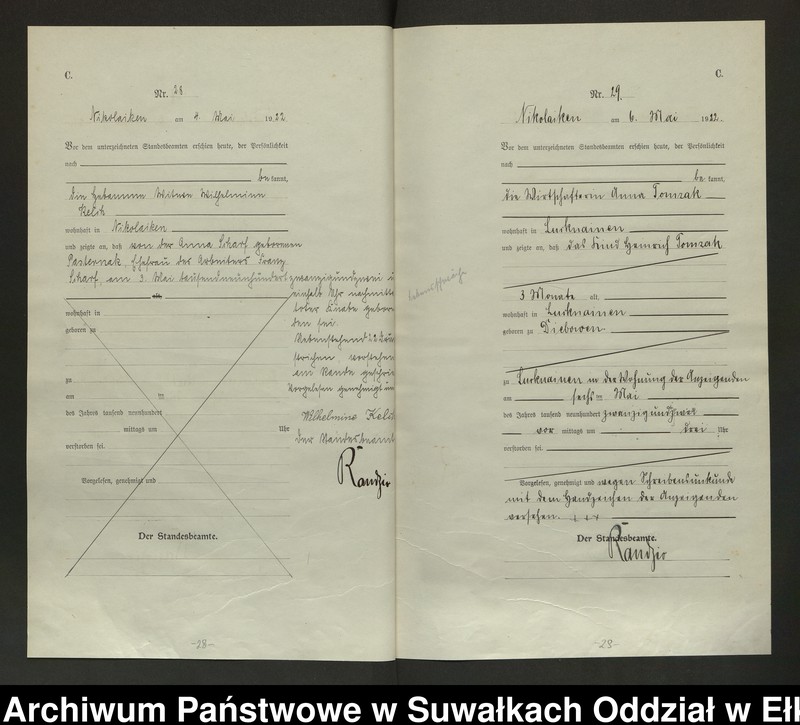 C.
Nr. 28
Nikolaiken am 4. Mai 1922
Vor dem unterzeichneten Standesbeamten erschien heute, der Persönlichkeit
nach
bekannt,
die Hebamme Witwe Wilhelmine
Kelch
wohnhaft in Nikolaiken
und zeigte an, daß von der Anna Scharf geborenen
Pasternak, Ehefrau des Arbeiters Franz
Scharf, am 3. Mai tausendneunhundertzwanzigundzwei
einhalb Uhr nachmitta
toter Knabe gebor
den sei.
wohnhaft in
geboren zu
Nebenstehend 22 Druc
strichen, vorstehen
am Rande geschrie
Vorgelesen genehmigt un
zu
am ten
des Jahres tausend neunhundert
mittags um Uhr
verstorben sei.
Wilhelmine Kelch
Der Standesbeamt
Randzio
Vorgelesen, genehmigt und
Der Standesbeamte.
-28-
C.
Nr. 29.
Nikolaiken am 6. Mai 1922.
Vor dem unterzeichneten Standesbeamten erschien heute, der Persönlichkeit
nach
bekannt,
die Wirtschafterin Anna Tomzak
wohnhaft in Lucknainen
und zeigte an, daß das Kind Heinrich Tomzak
3 Monate alt,
wohnhaft in Lucknainen
geboren zu Diebowen
zu Lucknainen in der Wohnung der Anzeigenden
am sechsten Mai
des Jahres tausend neunhundert zwanzigundzwei
vor mittags um drei Uhr
verstorben sei.
Vorgelesen, genehmigt und wegen Schreibensunkunde
mit dem Handzeichen der Anzeigenden
versehen. + + +
Der Standesbeamte.
Randzio
-29-
Archiwum Państwowe w Suwałkach Oddział w Eł